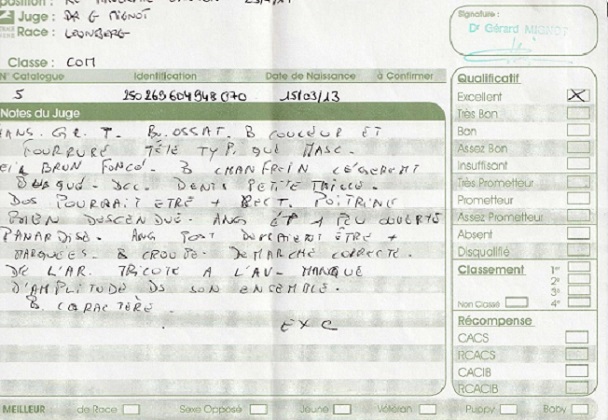 Juge : DR G MIGNOT
Race : LEONBERG
Signature :
Dr Gérard MIGNOT
Classe : COM
N° Catalogue Identification Date de Naissance à Confirmer
5 250269604948070 15/03/13
Notes du Juge
GR. T. B. OSSAT. B COULEUR ET
FOURRURE TÊTE TYP. QUE MASC.
BRUN FONCÉ. B CHANFREIN LÉGEREMT
BUSQUÉ. DCC. DENTS PETITE TAILLE.
DOS POURRAIT ETRE + RECT. POITRINE
BIEN DESCENDUE. ANG ÉP 1 PEU OUVERTE
PANARDISE. ANG POST DEVRAIENT ÊTRE +
MARQUÉES. B CROUPE. DEMARCHE CORRECTE.
DE L'AR. TRICOTE A L'AV. MANQUE
D'AMPLITUDE DS SON ENSEMBLE.
B. CARACTÈRE.
EXC
Qualificatif
Excellent X
Très Bon
Bon
Assez Bon
Insuffisant
Très Prometteur
Prometteur
Assez Prometteur
Absent
Disqualifié
Classement 1er
2e
3e
Non Classé 4e
Récompense
CACS
RCACS
CACIB
RCACIB
MEILLEUR de Race Sexe Opposé Jeune Vétéran Puppy Baby